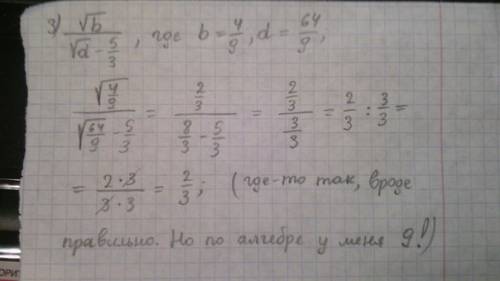 3) √b / (√d - 5/3), где b = 4/9, d = 64/9,
√(4/9) / (√(64/9) - 5/3) = (2/3) / (8/3 - 5/3) = (2/3) / (3/3) = 2/3 : 3/3 =
= (2·3) / (3·3) = 2/3; (где-то так, вроде
правильно. Но по алгебре у меня 9!)